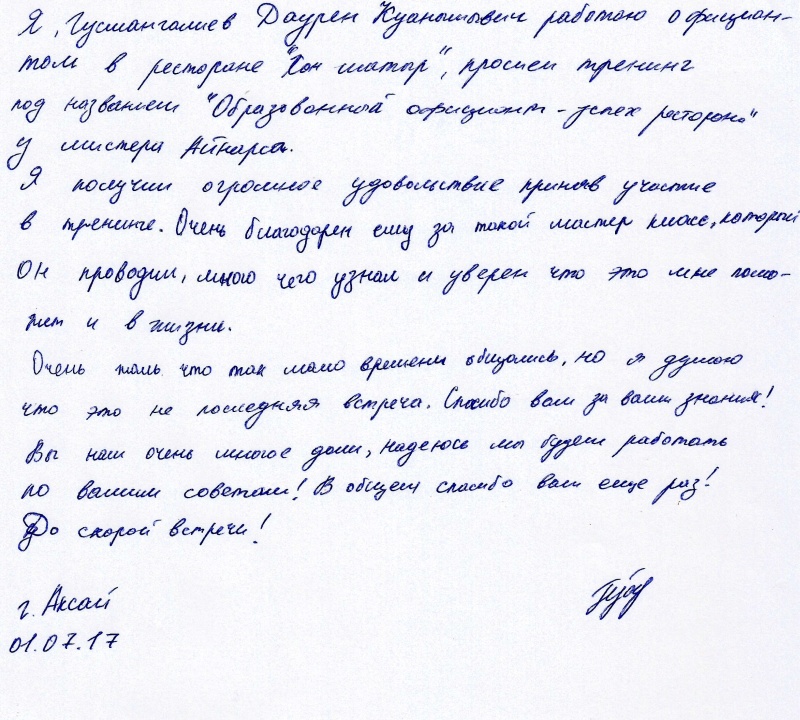 Я, Гусмангалиев Даурен Куанышевич работаю официан-
том в ресторане "Хан шатыр", прошел тренинг
под названием "Образованный официант - успех ресторана"
у мистера Айнарса.
Я получил огромное удовольствие приняв участие
в тренинге. Очень благодарен ему за такой мастер класс, который
он проводил, много чего узнал и уверен что это мне помо-
жет и в жизни.
Очень жаль что так мало времени общались, но я думаю
что это не последняя встреча. Спасибо вам за ваши знания!
Вы нам очень многое дали, надеюсь мы будем работать
по вашим советам! В общем спасибо вам еще раз!
До скорой встречи!
г. Аксай
01.07.17